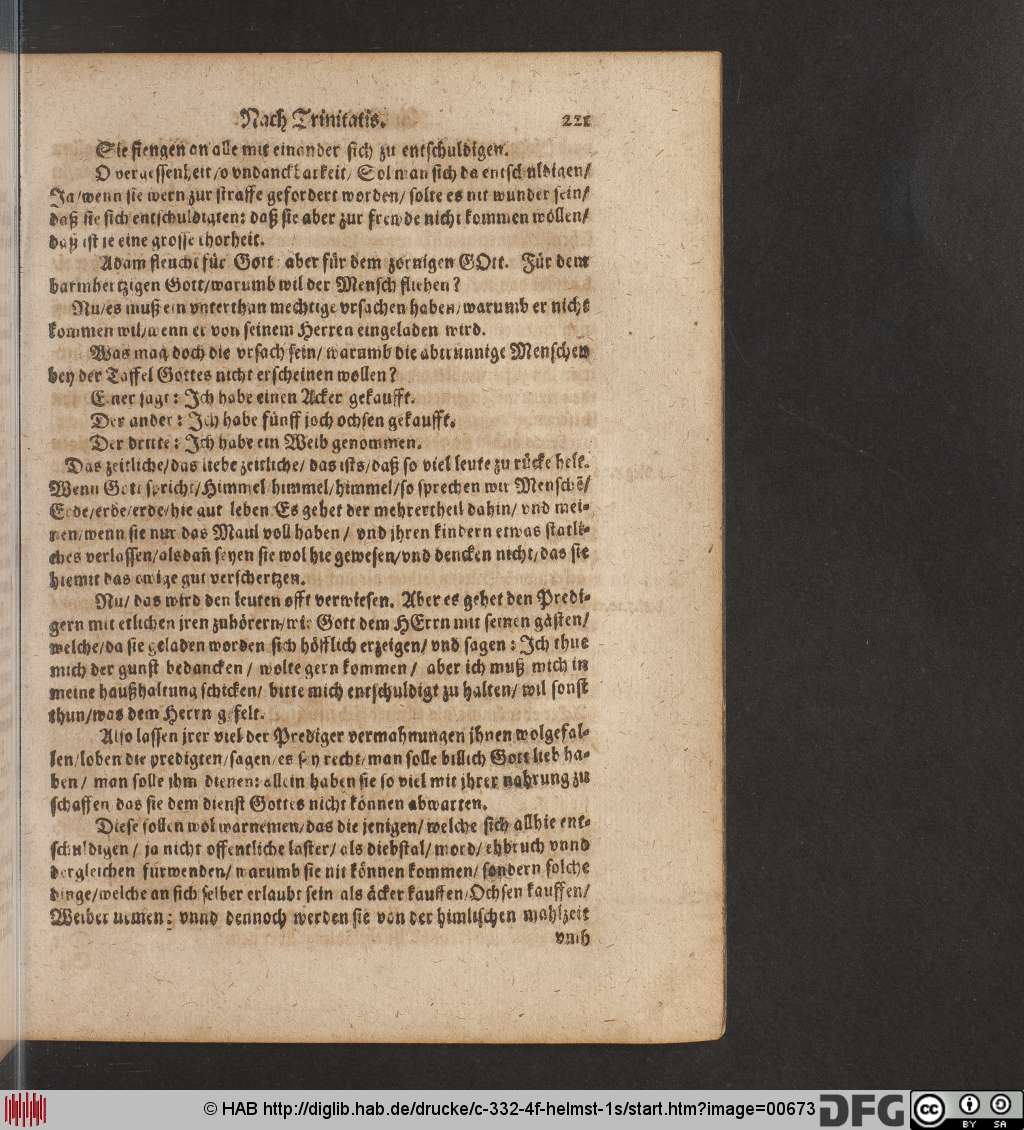 Nach Trinitatis. 221
Sie fiengen an alle mit einander sich zu entschuldigen.
O vergessenheit/o vndanckbarkeit/ Sol man sich da entschuldigen/
Ja/wenn sie wern zur straffe gefordert worden/ solte es nit wunder sein/
daß sie sich entschuldigten: daß sie aber zur frewde nicht kommen wöllen/
daß ist je eine grosse thorheit.
Adam fleucht für Gott: aber für dem zornigen GOtt. Für dem
barmhertzigen Gott/warumb wil der Mensch fliehen?
Nu/es muß ein vnterthan mechtige vrsachen haben/warumb er nicht
kommen wil/wenn er von seinem Herren eingeladen wird.
Was mag doch die vrsach sein/ warumb die abtrünnige Menschen
bey der Taffel Gottes nicht erscheinen wollen?
Einer sagt: Ich habe einen Acker gekaufft.
Der ander: Ich habe fünff joch ochsen gekaufft.
Der dritte: Ich habe ein Weib genommen.
Das zeitliche/das liebe zeitliche/ das ists/daß so viel leute zu rücke helt.
Wenn Gott spricht/Himmel/himmel/himmel/so sprechen wir Menschē/
Erde/erde/erde/hie gut leben Es gehet der mehrertheil dahin/ vnd mei-
nen/wenn sie nur das Maul voll haben/ vnd jhren kindern etwas statli-
ches verlassen/alsdañ seyen sie wol hie gewesen/vnd dencken nicht/das sie
hiemit das ewige gut verschertzen.
Nu/ das wird den leuten offt verwiesen. Aber es gehet den Predi-
gern mit etlichen jren zuhörern/wie Gott dem HErrn mit seinen gästen/
welche/da sie geladen worden sich höfflich erzeigen/ vnd sagen: Ich thue
mich der gunst bedancken/ wolte gern kommen/ aber ich muß mich in
meine haußhaltung schicken/ bitte mich entschuldigt zu halten/ wil sonst
thun/was dem Herrn gefelt.
Also lassen jrer viel der Prediger vermahnungen jhnen wolgefal-
len/loben die predigten/sagen/es sey recht/man solle billich Gott lieb ha-
ben/ man solle ihm dienen: allein haben sie so viel mit jhrer nahrung zu
schaffen das sie dem dienst Gottes nicht können abwarten.
Diese sollen wol warnemen/das die jenigen/ welche sich allhie ent-
schuldigen/ ja nicht offentliche laster/ als diebstal/ mord/ ehbruch vnnd
dergleichen fürwenden/ warumb sie nit können kommen/ sondern solche
dinge/welche an sich selber erlaubt sein als äcker kauffen/Ochsen kauffen/
Weiber nemen: vnnd dennoch werden sie von der himlischen mahlzeit
vmb
© HAB http://diglib.hab.de/drucke/c-332-4f-helmst-1s/start.htm?image=00673
DFG
cc BY SA